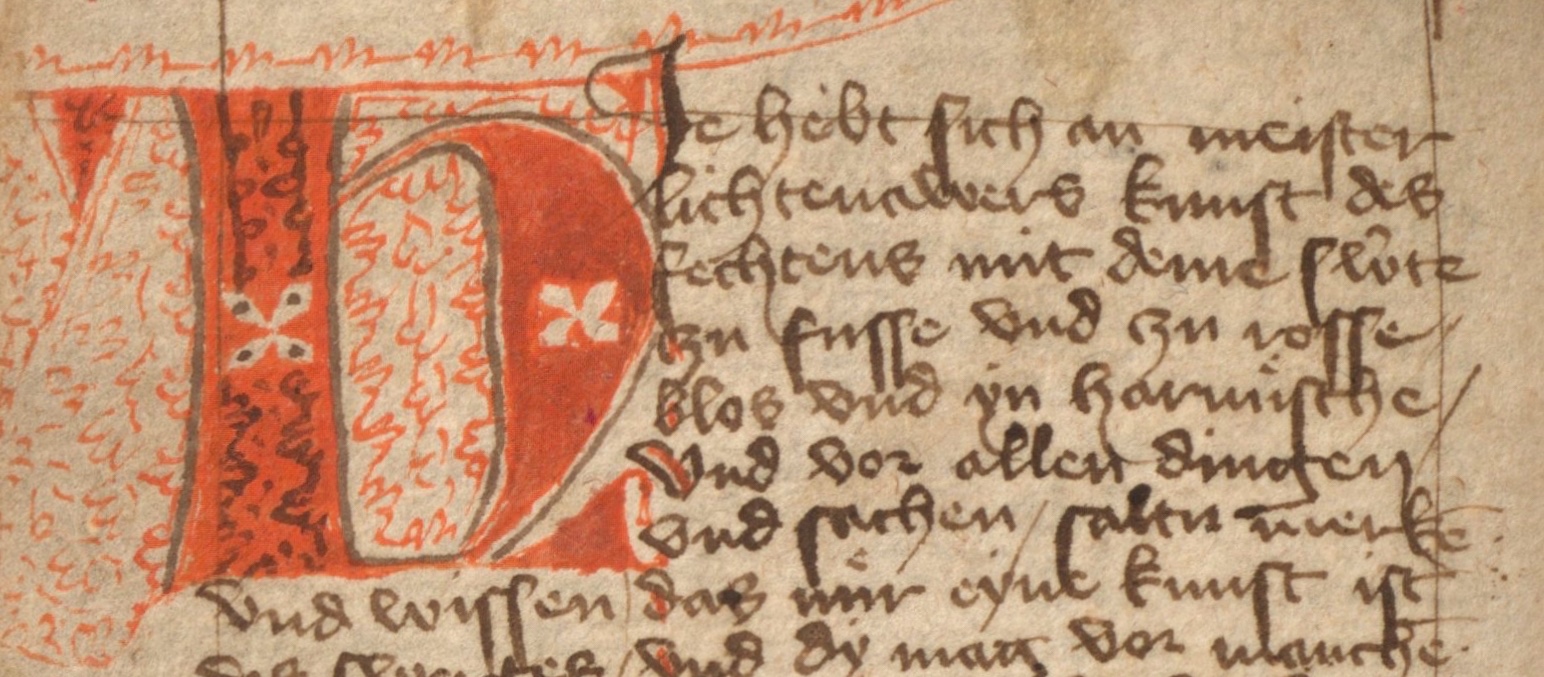 HIe hebt sich an meister
lichtenawers kunst des
fechtens mit deme sw̄te
czu fusse vnd czu rosse /
blos vnd yn harnůsche /
Vnd vor allen dingen
vnd sachen / saltu merkē
vnd wissen / das nůr eyne kunst ist
des swertes / vnd dy mag vor manchē